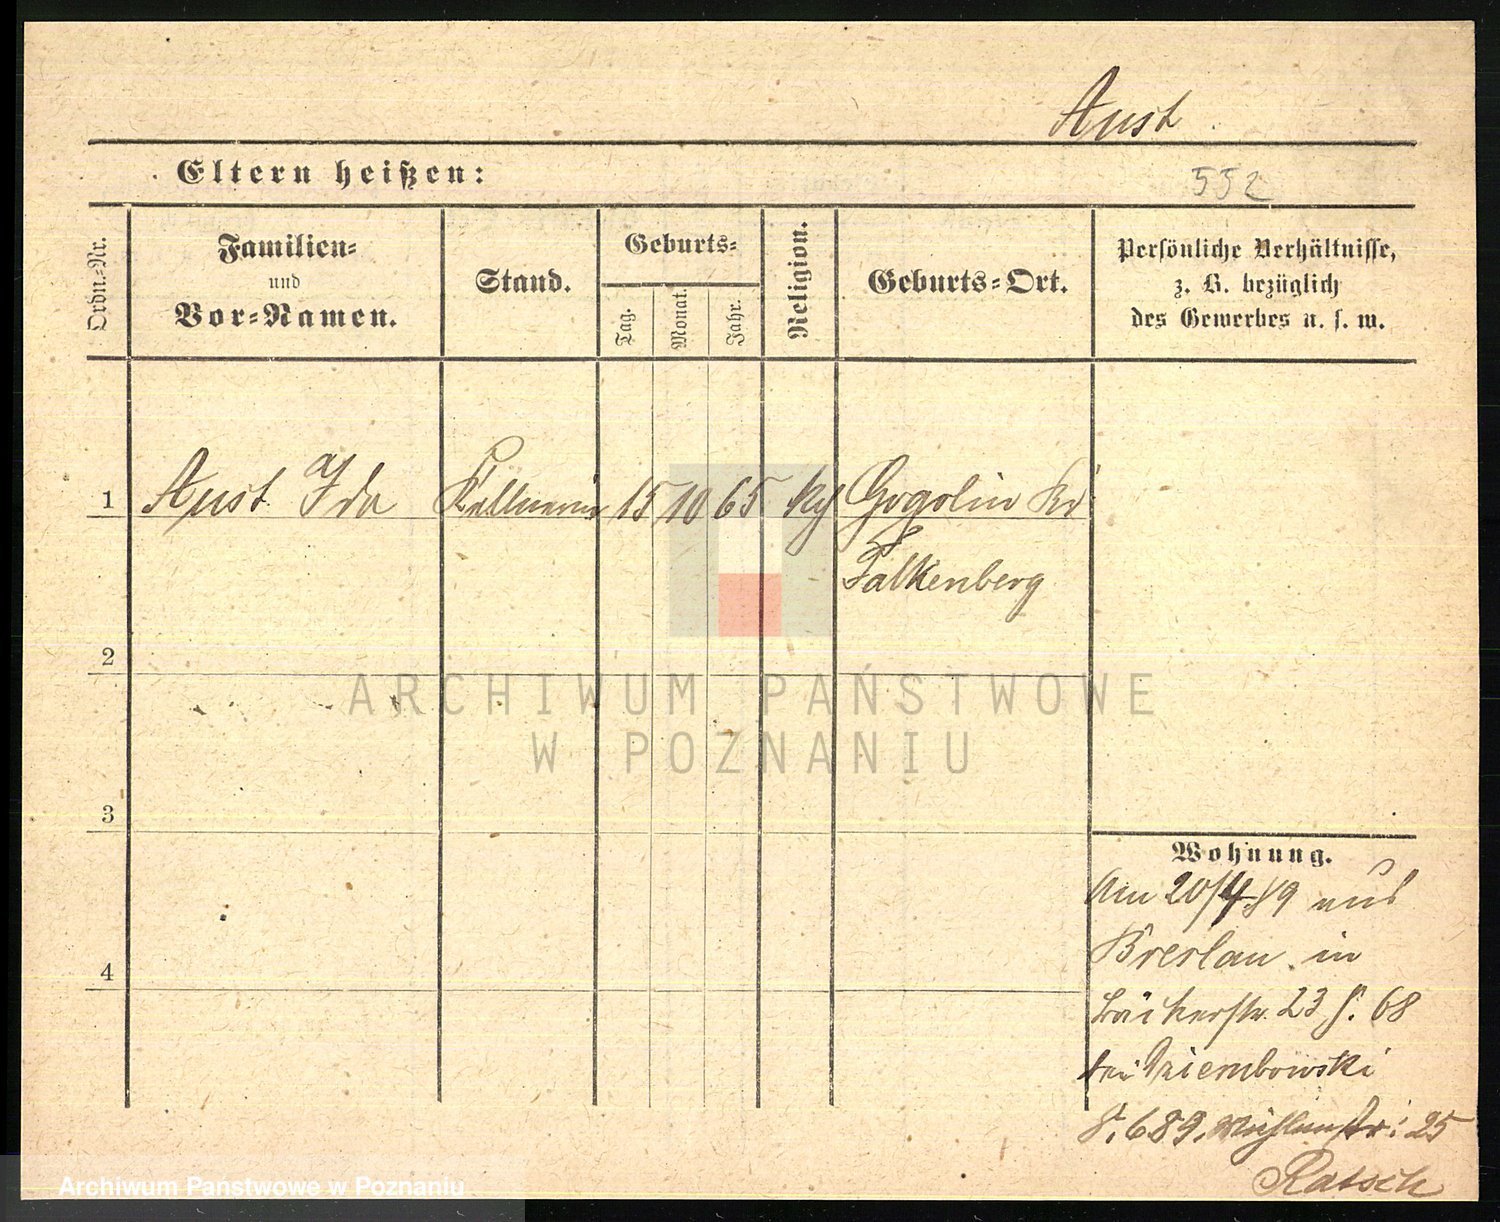 Aust
Eltern heißen:
552
Ordn.-Nr.
Familien-
und
Vor-Namen.
Stand.
Geburts-
Tag.
Monat.
Jahr.
Religion.
Geburts-Ort.
Persönliche Verhältnisse,
z. B. bezüglich
des Gewerbes u. s. w.
1 Aust Ida Kellnerin 15 10 65 kg Gogolin Kr
Falkenberg
2
3
4
Wohnung.
Am 20/4 89 aus
Breslau in
Bäckerstr. 23 68
bei Dziembowski
8. 6 89. Mühlenstr: 25
Ratsch
ARCHIWUM PAŃSTWOWE
W POZNANIU
Archiwum Państwowe w Poznaniu